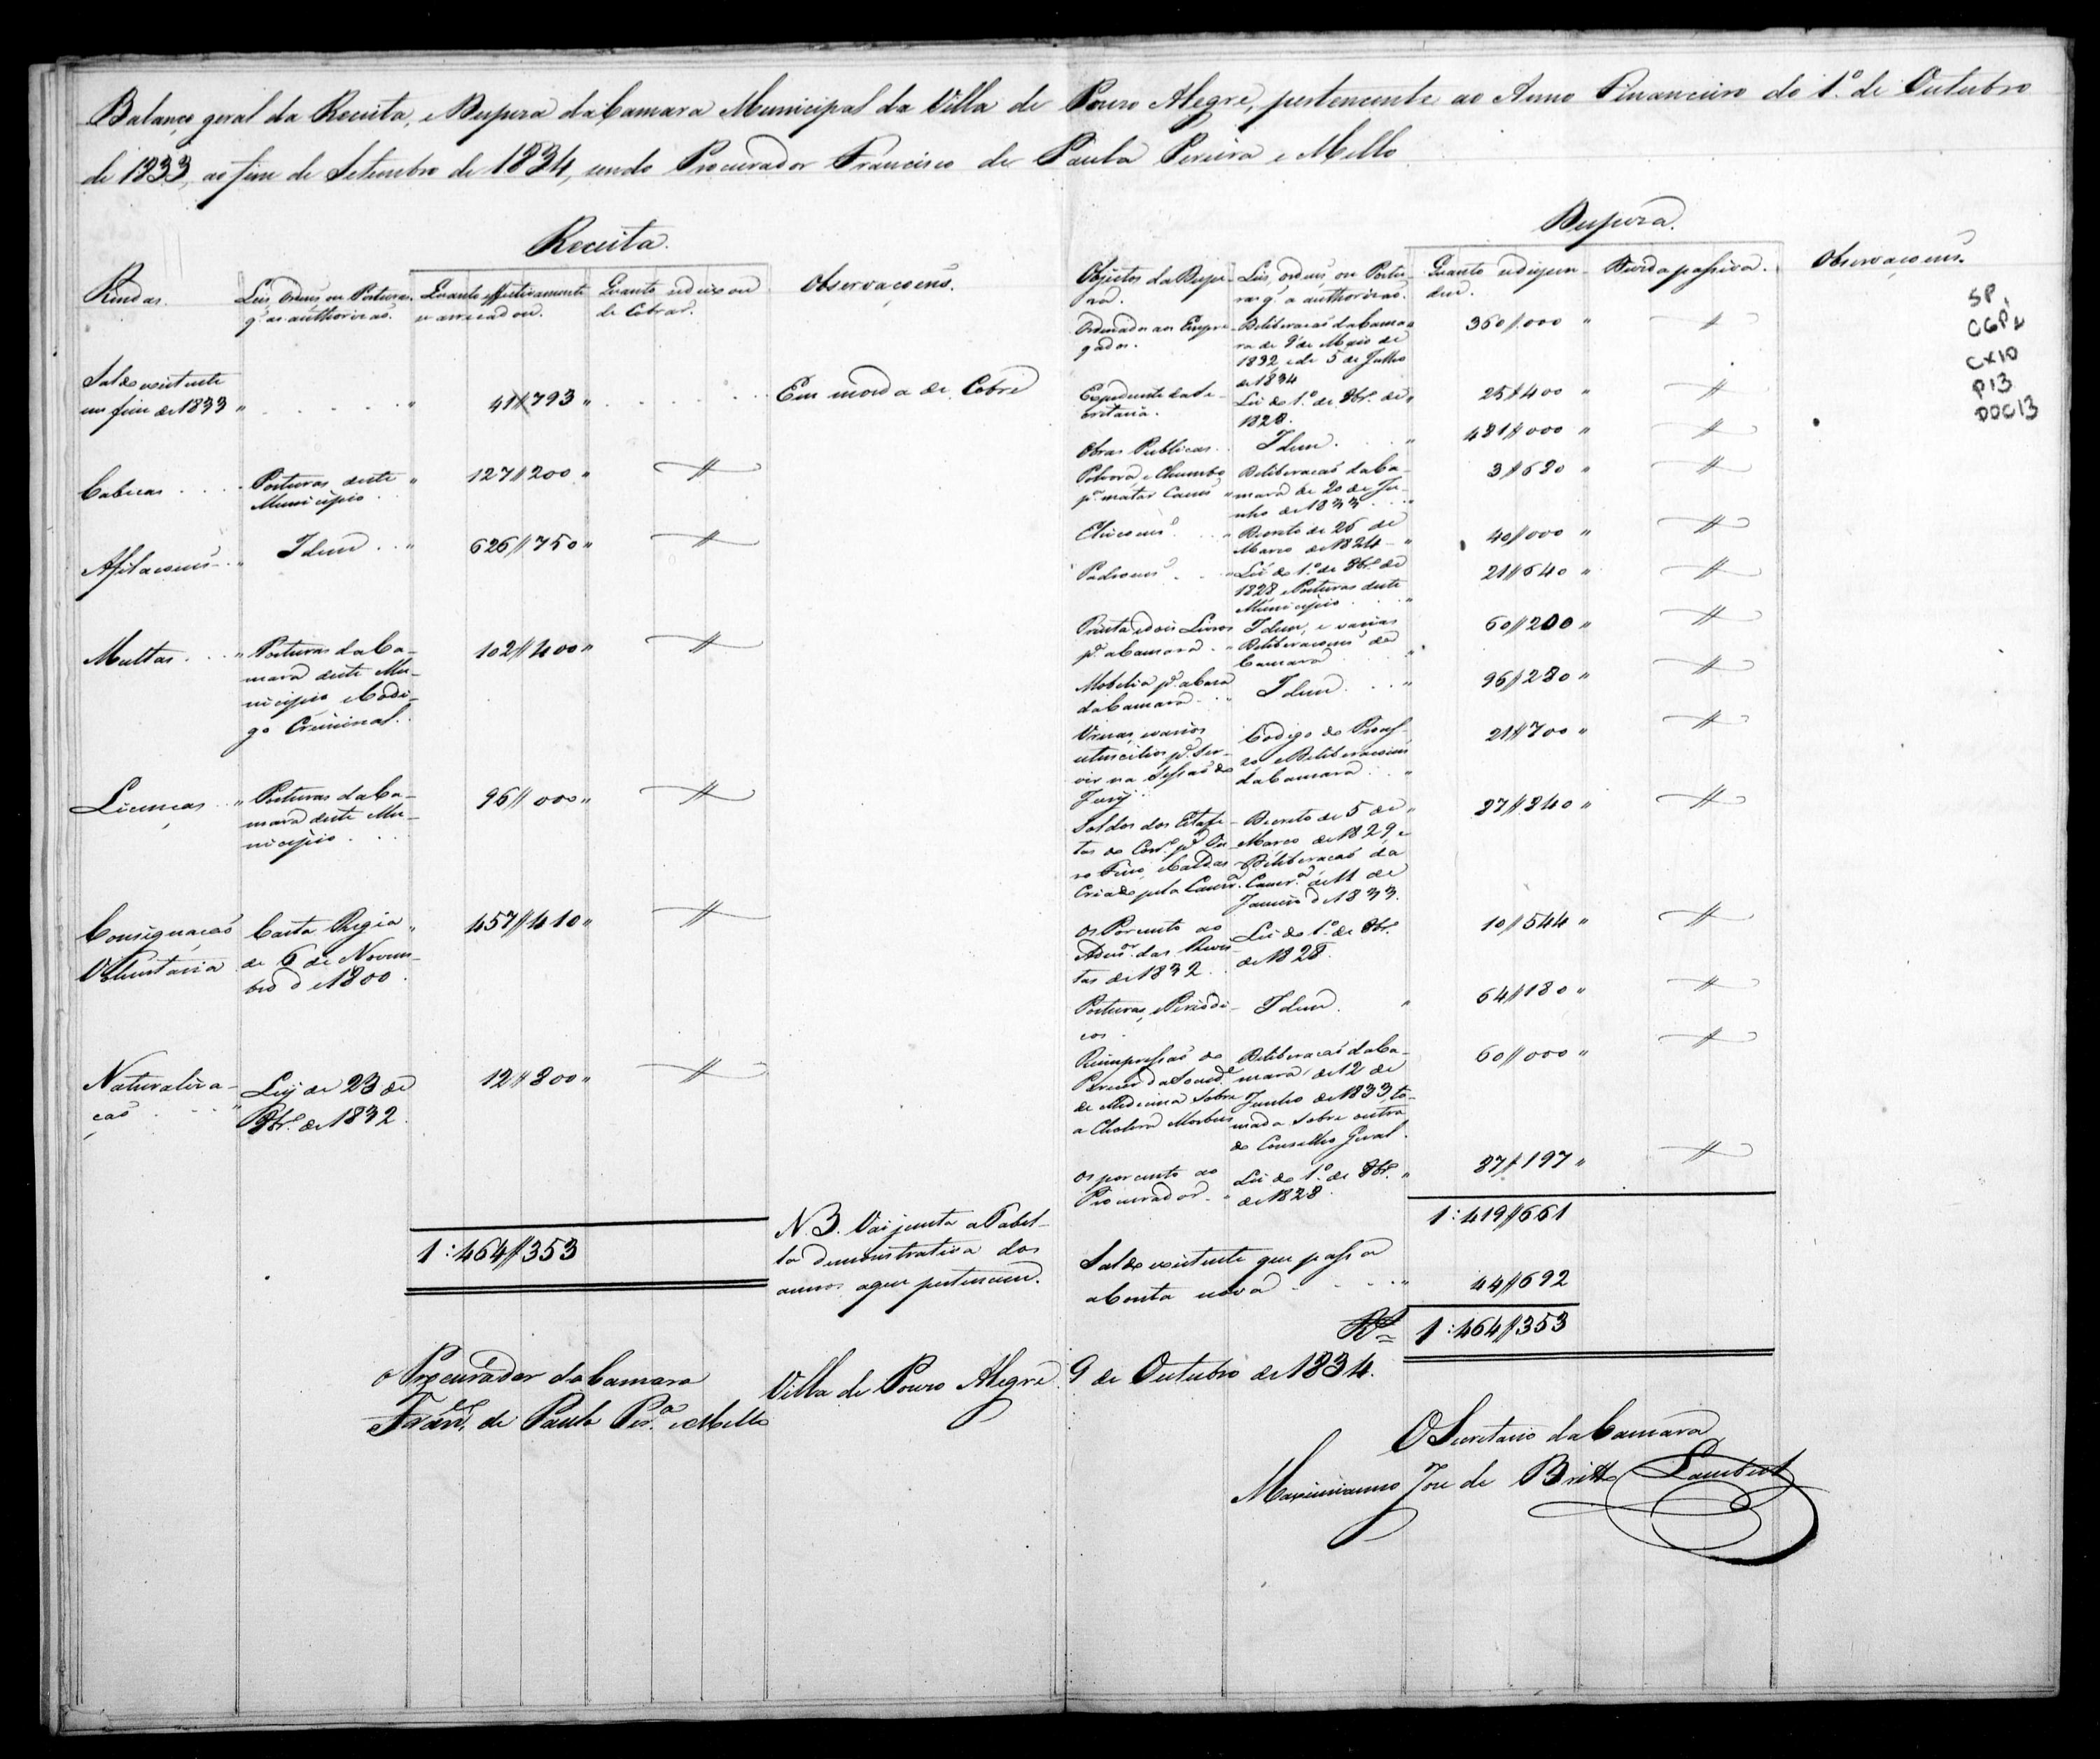 Balanço geral da Receita, e Despeza da Camara Municipal da Villa de Pouzo Alegre, pertencente ao Anno Financeiro do 1.º de Outubro
de 1833, ao fim de Setembro de 1834, sendo Procurador Francisco de Paula Pereira e Mello
Receita.
Rendas.
Leis, Ordens, ou Posturas
q. as authorizaõ.
Quanto effectivamente
se arrecadou.
Quanto se deixou
de Cobrar.
Observaçoens.
Saldo existente
em fim de 1833 "
41$793 "
Em moeda de Cobre
Cabeças
Posturas deste "
Municipio
127$200 "
Afilaçoens "
Idem "
626$750 "
Multas "
Posturas da Ca-
mara deste Mu-
nicipio, e Codi-
go Criminal.
102$400 "
Licenças "
Posturas da Ca-
mara deste Mu-
nicipio
96$000 "
Consignaçaõ
Voluntaria
Carta Regia "
de 6 de Novem-
bro de 1800
457$410 "
Naturaliza-
çaõ "
Ley de 23 de
8br.º de 1832
12$800 "
1:464$353
N.B. Vai junta a Tabel-
la demonstrativa dos
annos a que pertencem.
Despeza.
Objectos da Despe-
za.
Leis, ordens, ou Postu-
ras q. a authorizaõ.
Quanto se dispen-
deu.
Divida passiva.
Observaçoens.
SP
CGP
CX10
P13
DOC13
Ordenado aos Empre-
gados.
Deliberaçaõ da Cama-
ra de 9 de Maio de
1832, e de 5 de Julho
de 1834
360$000 "
Expediente da Se-
cretaria.
Lei do 1.º de 8br.º de "
1828.
25$400 "
Obras Publicas
Idem. "
481$000 "
Polvora, e Chumbo
p.ª matar Caens "
Deliberaçaõ da Ca-
mara de 20 de Ju-
nho de 1833
3$680 "
Eleiçoens "
Decreto de 26 de
Março de 1824 "
40$000 "
Padroens
Lei do 1.º de 8br.º de
1828, e Posturas deste
Municipio "
21$640 "
Trinta e dois Livros
p.ª a Camara "
Idem, e varias
Deliberaçoens da
Camara "
60$200 "
Mobilia p.ª a Caza
da Camara "
Idem. "
96$280 "
Urnas, e varios
utincilios p.ª ser-
vir na Sessaõ do
Jury
Codigo do Proces-
so, e Deliberaçoens
da Camara "
21$700 "
Soldos dos Estafe-
tas do Corr.º p.ª Ou-
ro Fino, e Caldas
Criado pela Camr.ª
Decreto de 5 de "
Março de 1829, e
Deliberaçaõ da
Camr.ª de 11 de
Janeiro de 1833.
87$840 "
Os Por cento ao
das Recei-
tas de 1832
Lei do 1.º de 8br.º
de 1828.
10$544 "
Posturas, e Periodi-
cos
Idem. "
64$180 "
Reimpressaõ do
Parecer da Socied.e
de Medicina Sobre
a Cholera Morbus
Deliberaçaõ da Ca-
mara, de 12 de
Junho de 1833, to-
mada sobre outra
do Conselho Geral.
60$000 "
Os por cento ao
Procurador "
Lei do 1.º de 8br.º "
de 1828
87$197 "
1:419$661
Saldo existente que passa
a Conta nova "
44$692
R.s 1:464$353
Villa de Pouzo Alegre 9 de Outubro de 1834.
o Procurador da Camara
Fran.co de Paula Per.ª e Mello
O Secretario da Camara
Maximianno Joze de Britto Lambert